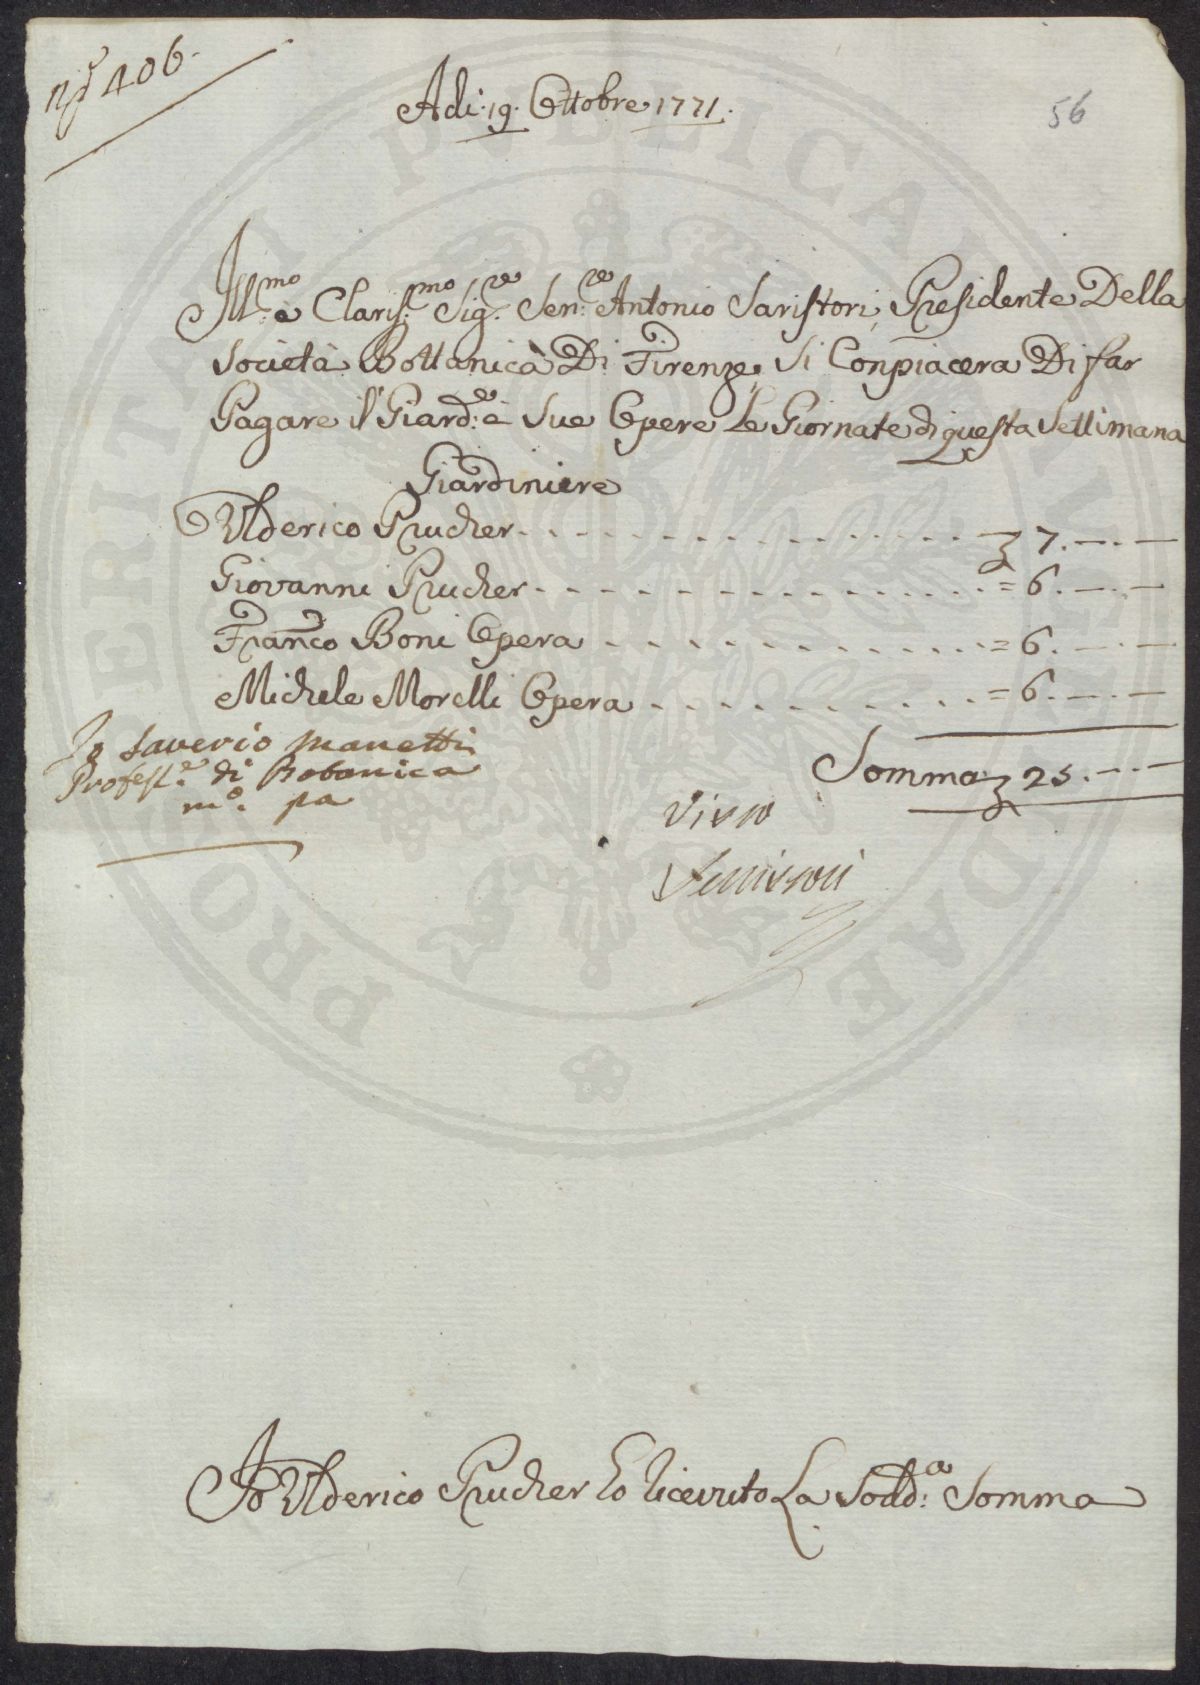 N.º 406.
Adi. 19. Ottobre 1771.
56
Ill.mo e Claris.mo Sig.re Sen.re Antonio Saristori, Presidente Della
Società Bottanica Di Firenze, Si Conpiacera Di far
Pagare il Giard.e e Sue Opere Le Giornate di questa Settimana
Giardiniere
Ulderico Prucher - - - - - - - - - - - - - - 7. — . —
Giovanni Prucher - - - - - - - - - - - - - - = 6. — . —
Fran.co Boni Opera - - - - - - - - - - - - = 6. — . —
Michele Morelli Opera - - - - - - - - - - = 6. — . —
Somma 25. — . —
Jo Saverio Manetti
Profess.e di Botanica
m.o pa
Visto
Io Ulderico Prucher ho riceuuto La Sodd.a Somma
PROSPERITATI PUBLICAE